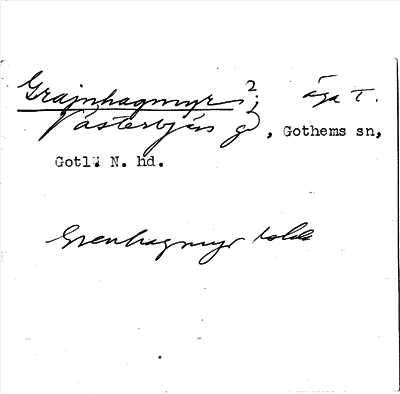 Grajnhagmyr 2; äga t.
Västerbjärs gd, Gothems sn,
Gotl. N. hd.
Grenhagmyr